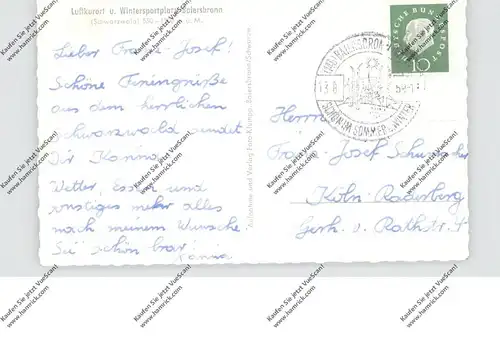 Luftkurort u. Wintersportplatz Baiersbronn
(Schwarzwald) 550 - u. M.
Lieber Franz-Josef!
Schöne Feriengrüße
aus dem herrlichen
Schwarzwald sendet
Dir Karina
Wetter, Essen und
sonstiges mehr alles
nach meinem Wunsche
Sei schön brav
Aufnahme und Verlag Foto Klumpp, Baiersbronn/Schwarzw.
DEUTSCHE BUNDESPOST
10
BAIERSBRONN
13.8.59
SCHÖN IM SOMMER WINTER
Herrn
Franz-Josef
Köln-Raderberg
Gerh. v. Rath str.
Kaufen Sie jetzt VueScan!
www.hamrick.com